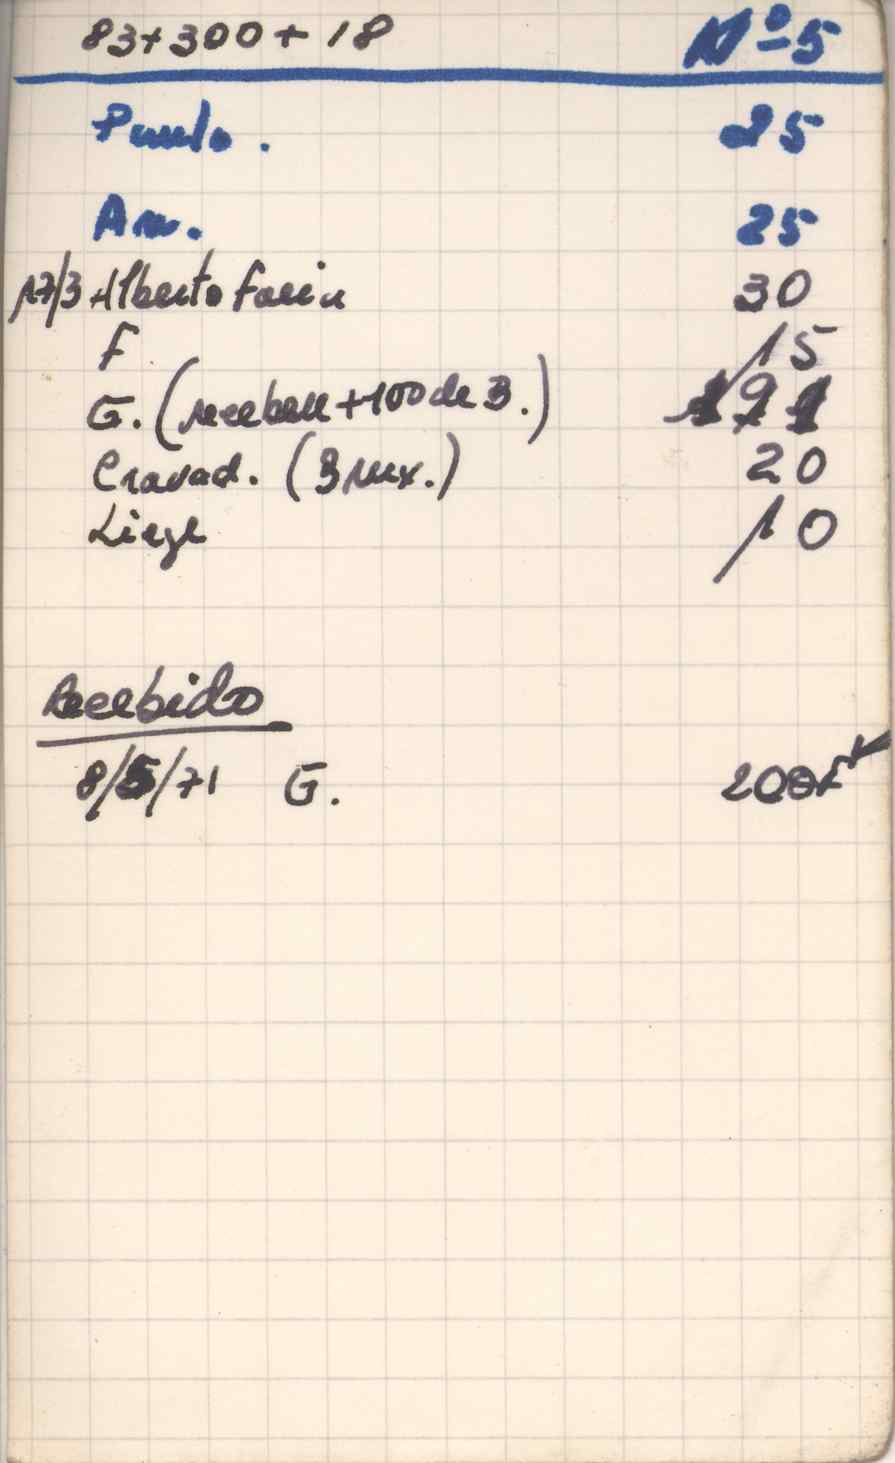 83+300+18 Nº 5
Paulo. 25
Am. 25
17/3 Alberto Faria 30
F 15
G. (recebeu +100 de B.) 191
Cravad. (3 20
Liege 10
Recebido
8/5/71 G. 200F